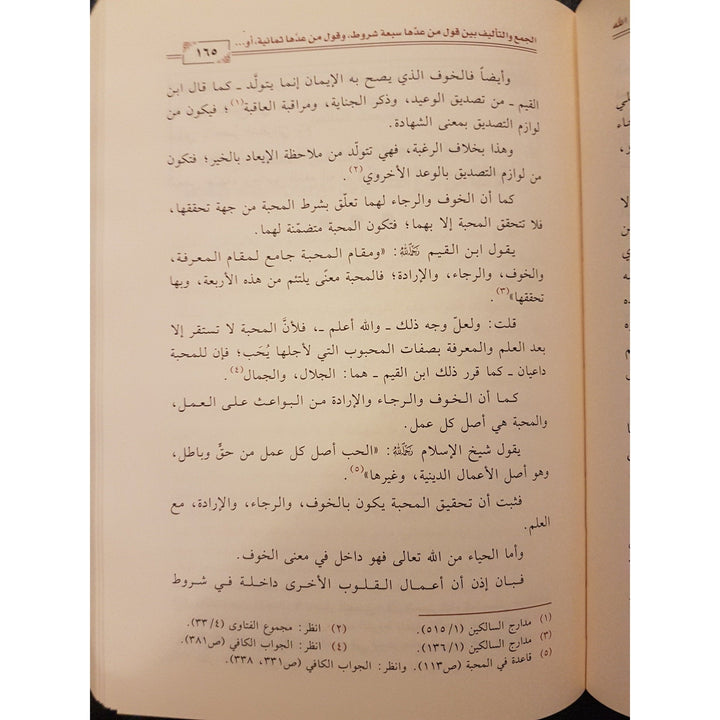 الجمع والتأليف بين قول من عدّها سبعة شروط، وقول من عدّها ثمانية، أو...
١٦٥
وأيضاً فالخوف الذي يصح به الإيمان إنما يتولَّد ـ كما قال ابن
القيم ـ من تصديق الوعيد، وذكر الجناية، ومراقبة العاقبة(١)؛ فيكون من
لوازم التصديق بمعنى الشهادة.
وهذا بخلاف الرغبة، فهي تتولّد من ملاحظة الإيعاد بالخير؛ فتكون
من لوازم التصديق بالوعد الأخروي(٢).
كما أن الخوف والرجاء لهما تعلّق بشرط المحبة من جهة تحققها،
فلا تتحقق المحبة إلا بهما؛ فتكون المحبة متضمّنة لهما.
يقول ابن القيم رحمه الله: «ومقام المحبة جامع لمقام المعرفة،
والخوف، والرجاء، والإرادة؛ فالمحبة معنًى يلتئم من هذه الأربعة، وبها
تحققها»(٣).
قلت: ولعلّ وجه ذلك ـ والله أعلم ـ، فلأنَّ المحبة لا تستقر إلا
بعد العلم والمعرفة بصفات المحبوب التي لأجلها يُحَب؛ فإن للمحبة
داعيان ـ كما قرر ذلك ابن القيم ـ هما: الجلال، والجمال(٤).
كما أن الخوف والرجاء والإرادة من البواعث على العمل،
والمحبة هي أصل كل عمل.
يقول شيخ الإسلام رحمه الله: «الحب أصل كل عمل من حقٍّ وباطل،
وهو أصل الأعمال الدينية، وغيرها»(٥).
فثبت أن تحقيق المحبة يكون بالخوف، والرجاء، والإرادة، مع
العلم.
وأما الحياء من الله تعالى فهو داخل في معنى الخوف.
فبان إذن أن أعمال القلوب الأخرى داخلة في شروط
(١) مدارج السالكين (١/ ٥١٥). (٢) انظر: مجموع الفتاوى (٤/ ٣٣).
(٣) مدارج السالكين (١/ ١٣٦). (٤) انظر: الجواب الكافي (ص٣٨١).
(٥) قاعدة في المحبة (ص١١٣). وانظر: الجواب الكافي (ص٣٣١، ٣٣٨).